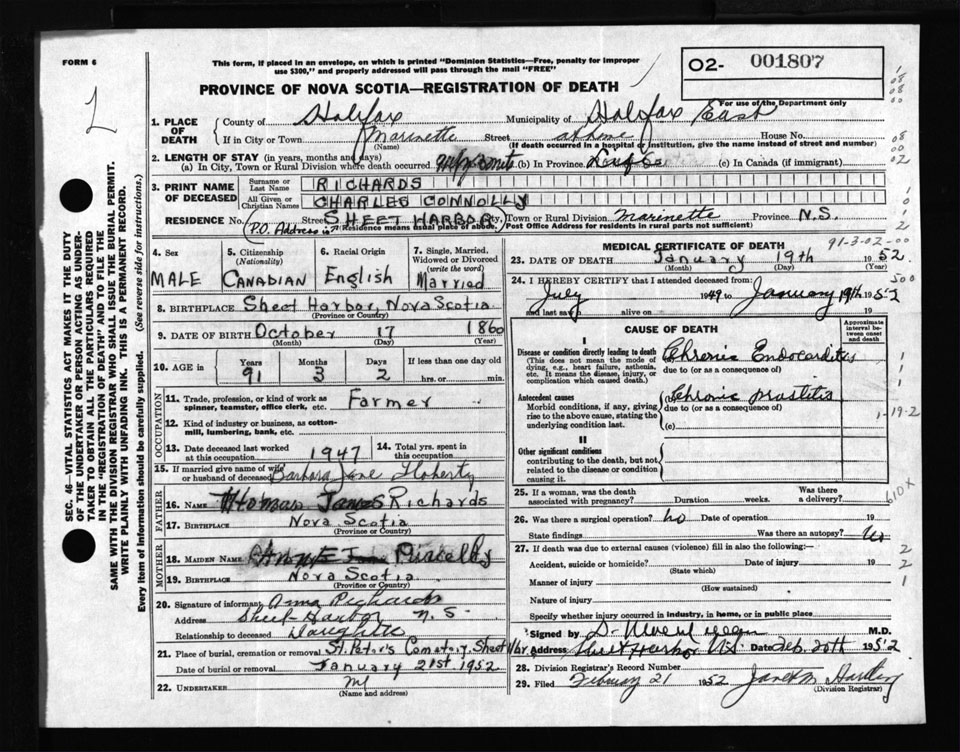 FORM 6
This form, if placed in an envelope, on which is printed "Dominion Statistics—Free, penalty for improper
use $300," and properly addressed will pass through the mail "FREE"
O2- 001807
PROVINCE OF NOVA SCOTIA—REGISTRATION OF DEATH
For use of the Department only
1. PLACE OF DEATH
County of Halifax Municipality of Halifax East
If in City or Town Marinette Street at home House No.
(Name) (If death occurred in a hospital or institution, give the name instead of street and number)
2. LENGTH OF STAY (in years, months and days)
(a) In City, Town or Rural Division where death occurred (b) In Province Life (c) In Canada (if immigrant)
3. PRINT NAME OF DECEASED
Surname or Last Name RICHARDS
All Given or Christian Names CHARLES CONNOLLY
RESIDENCE No. Street SHEET HARBOR City, Town or Rural Division Marinette Province N.S.
(P.O. Address is Residence means usual place of abode. Post Office Address for residents in rural parts not sufficient)
4. Sex MALE
5. Citizenship (Nationality) CANADIAN
6. Racial Origin English
7. Single, Married, Widowed or Divorced (write the word) Married
8. BIRTHPLACE Sheet Harbor, Nova Scotia
(Province or Country)
9. DATE OF BIRTH October 17 1860
(Month) (Day) (Year)
10. AGE in Years 91 Months 3 Days 2 If less than one day old hrs. or min.
OCCUPATION
11. Trade, profession, or kind of work as spinner, teamster, office clerk, etc. Farmer
12. Kind of industry or business, as cotton-mill, lumbering, bank, etc.
13. Date deceased last worked at this occupation 1947
14. Total yrs. spent in this occupation
15. If married give name of wife or husband of deceased Barbara Jane Floherty
FATHER
16. NAME Thomas James Richards
17. BIRTHPLACE Nova Scotia
(Province or Country)
MOTHER
18. MAIDEN NAME
19. BIRTHPLACE Nova Scotia
(Province or Country)
20. Signature of informant Anna Richards
Address Sheet Harbor N.S.
Relationship to deceased Daughter
21. Place of burial, cremation or removal St. Peter's Cemetery, Sheet Hbr
Date of burial or removal January 21st 1952
22. UNDERTAKER
(Name and address)
MEDICAL CERTIFICATE OF DEATH
91-3-02-00
23. DATE OF DEATH January 19th 1952.
(Month) (Day) (Year)
24. I HEREBY CERTIFY that I attended deceased from:
July 1949 to January 19th 1952
and last saw alive on 19
CAUSE OF DEATH
Approximate interval between onset and death
I
Disease or condition directly leading to death
(This does not mean the mode of dying, e.g., heart failure, asthenia, etc. It means the disease, injury, or complication which caused death.)
Chronic Endocarditis
due to (or as a consequence of)
Antecedent causes
Morbid conditions, if any, giving rise to the above cause, stating the underlying condition last.
Chronic prostitis
due to (or as a consequence of)
(c)
II
Other significant conditions
contributing to the death, but not related to the disease or condition causing it.
25. If a woman, was the death associated with pregnancy? Duration weeks. Was there a delivery?
26. Was there a surgical operation? no Date of operation 19
State findings Was there an autopsy? no
27. If death was due to external causes (violence) fill in also the following:—
Accident, suicide or homicide? Date of injury 19
(State which)
Manner of injury
(How sustained)
Nature of injury
Specify whether injury occurred in industry, in home, or in public place
Signed by M.D.
Address Sheet Harbor N.S. Date Feb. 20th 1952
28. Division Registrar's Record Number
29. Filed February 21 1952 Janet M Hartling
(Division Registrar)
SEC. 46—VITAL STATISTICS ACT MAKES IT THE DUTY
OF THE UNDERTAKER OR PERSON ACTING AS UNDER-
TAKER TO OBTAIN ALL THE PARTICULARS REQUIRED
IN THE "REGISTRATION OF DEATH" AND TO FILE THE
SAME WITH THE DIVISION REGISTRAR WHO SHALL ISSUE THE BURIAL PERMIT.
WRITE PLAINLY WITH UNFADING INK. THIS IS A PERMANENT RECORD.
Every item of information should be carefully supplied. (See reverse side for instructions.)